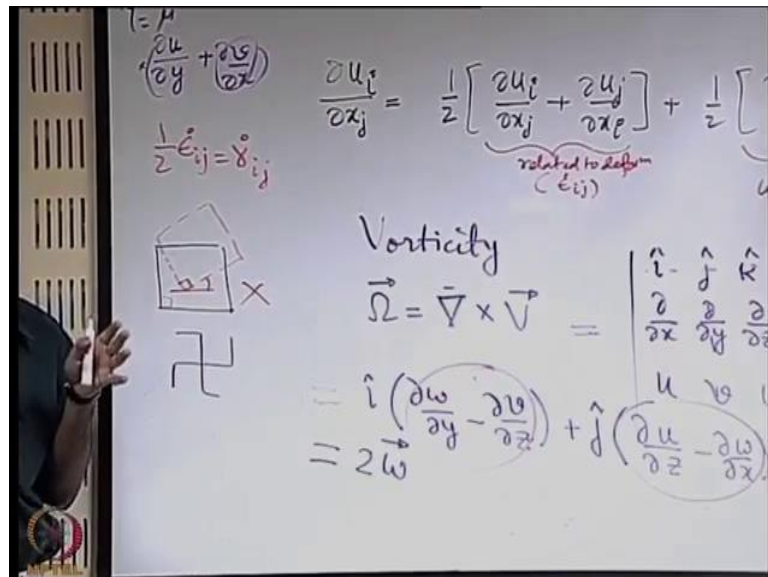 τ = μ
(∂u/∂y + ∂v/∂x)
1/2 ε̇ij = γ̇ij
∂ui/∂xj = 1/2 [∂ui/∂xj + ∂uj/∂xi] + 1/2 [
related to deform
(ε̇ij)
X
Vorticity
Ω⃗ = ∇̄ × V⃗ =
î ĵ k̂
∂/∂x ∂/∂y ∂/∂z
u v
= î (∂w/∂y - ∂v/∂z) + ĵ (∂u/∂z - ∂w/∂x)
= 2ω⃗
NPTEL